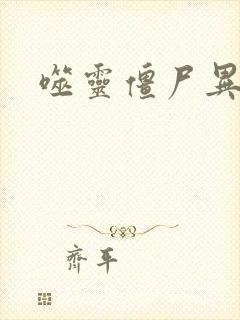 噬靈僵尸異
齊平